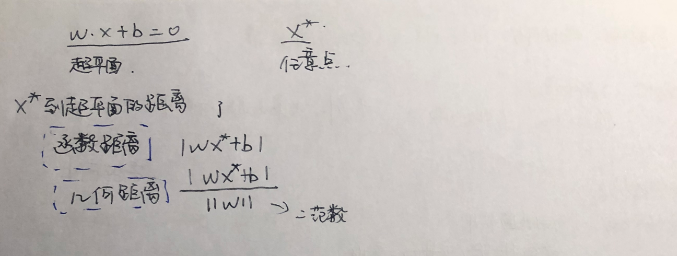 w·x+b=0 x*
超平面. 任意点.
x*到超平面的距离
函数距离 |wx*+b|
几何距离 |wx*+b|
||w|| → 二范数